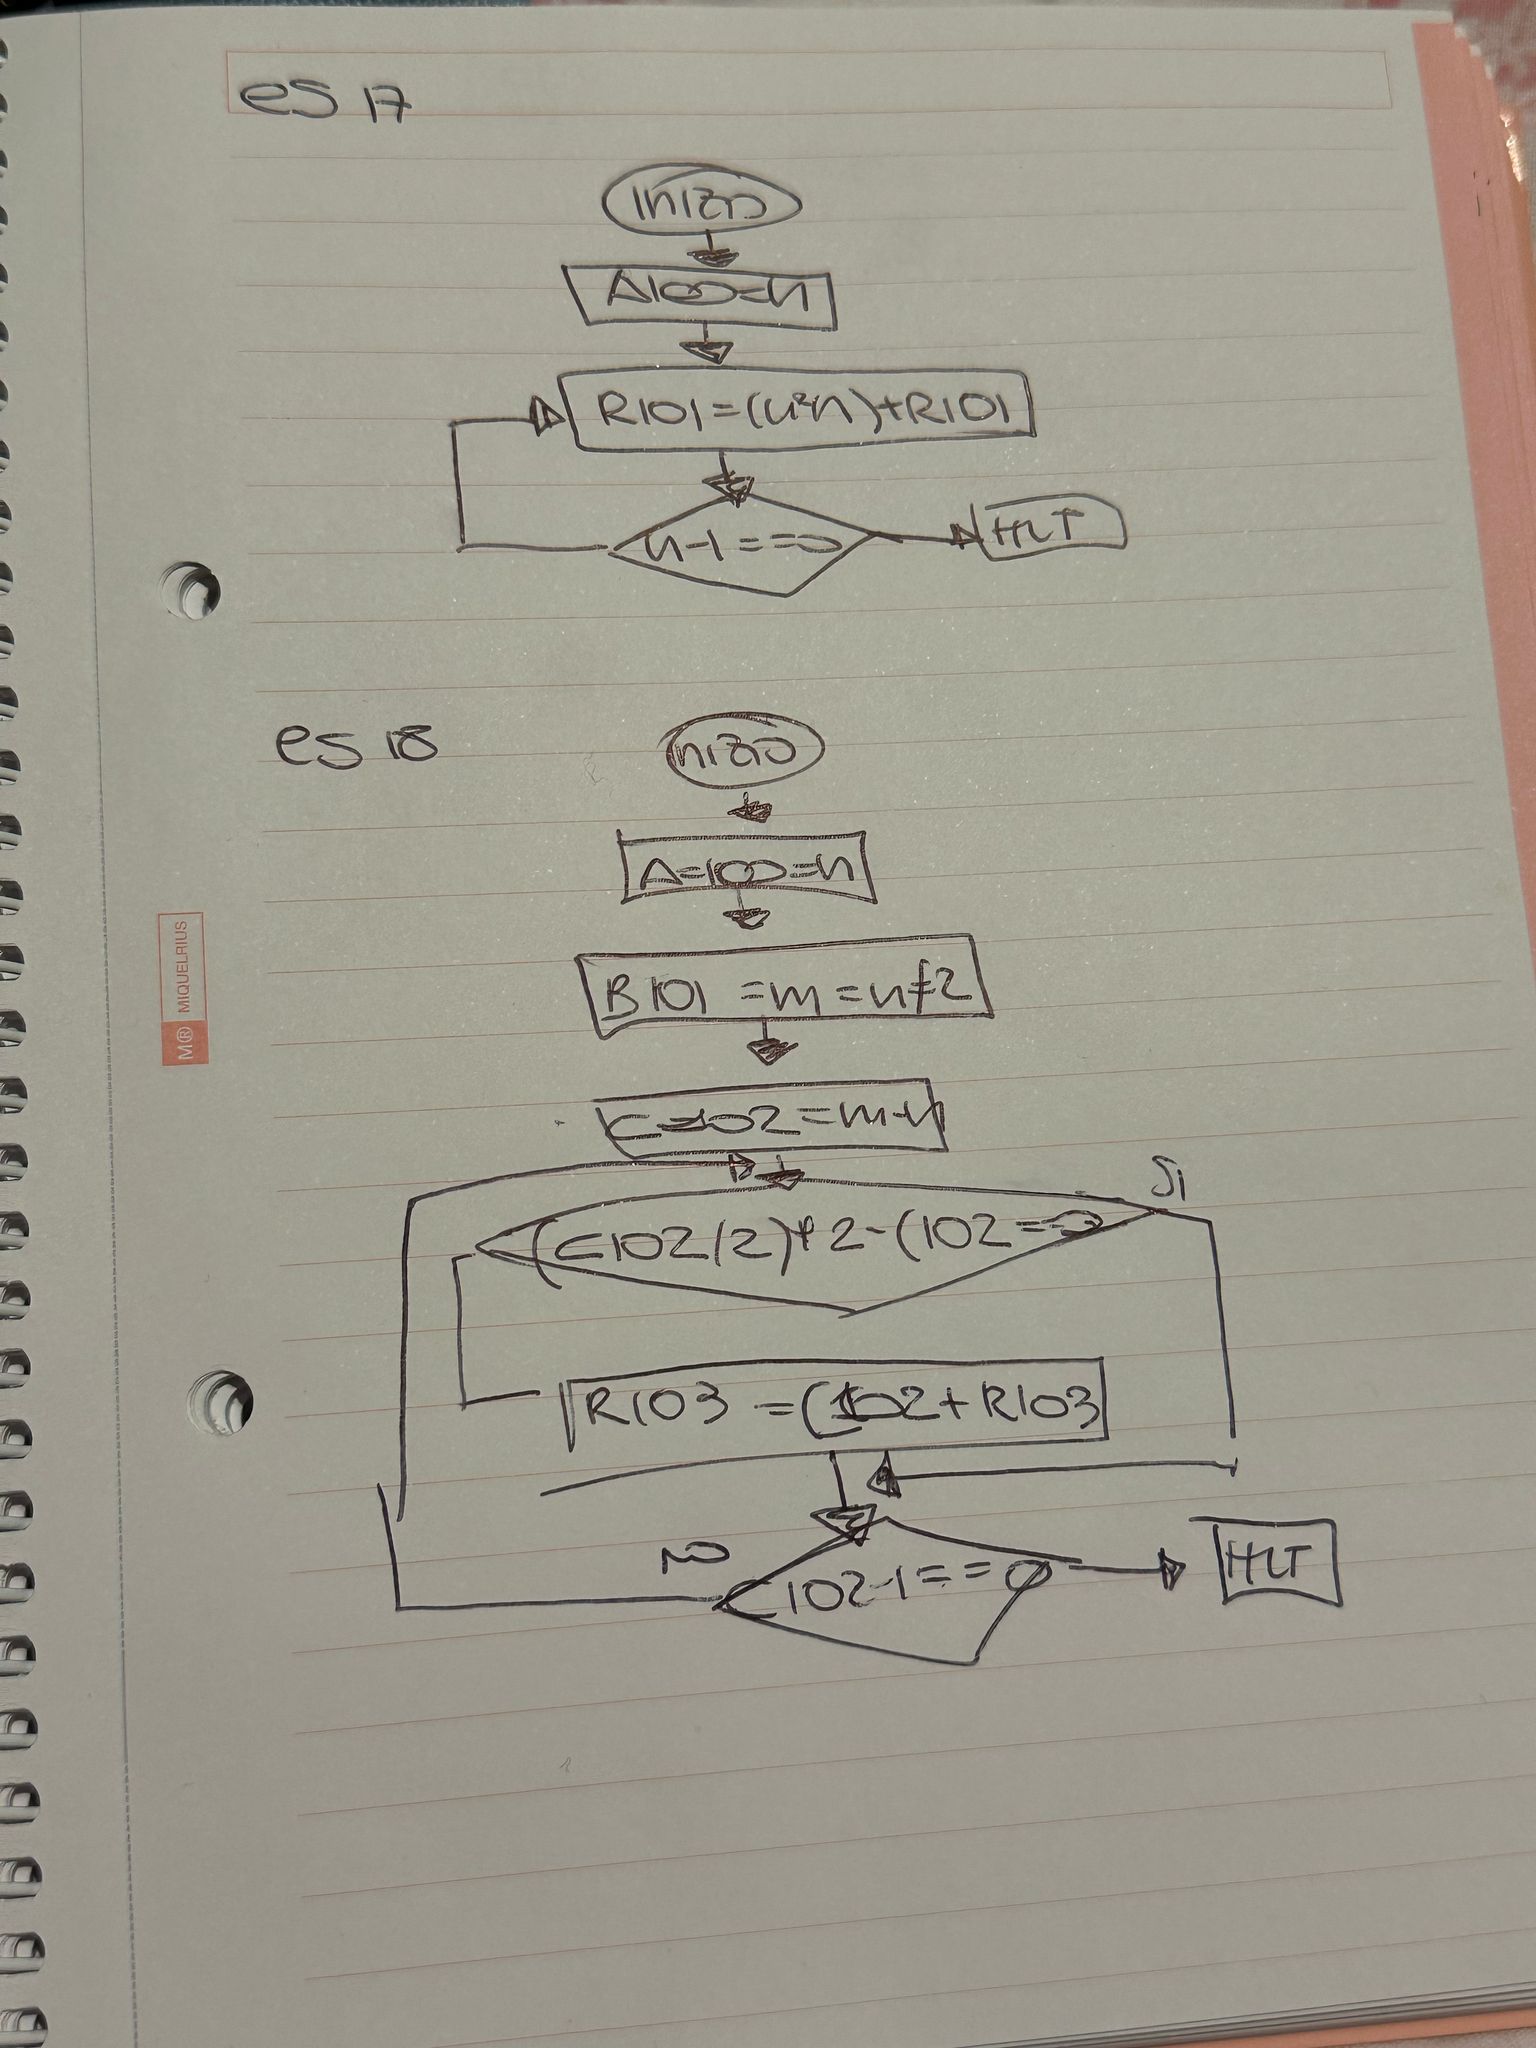 es 17
inizio
A100=n
R101=(n*n)+R101
n-1==0
HLT
es 18
inizio
A=100=n
B101 =m=n*2
C=102=m+n
Si
(C102/2)*2-C102==0
R103 =C102+R103
NO
C102-1==0
HLT
M® MIQUELRIUS